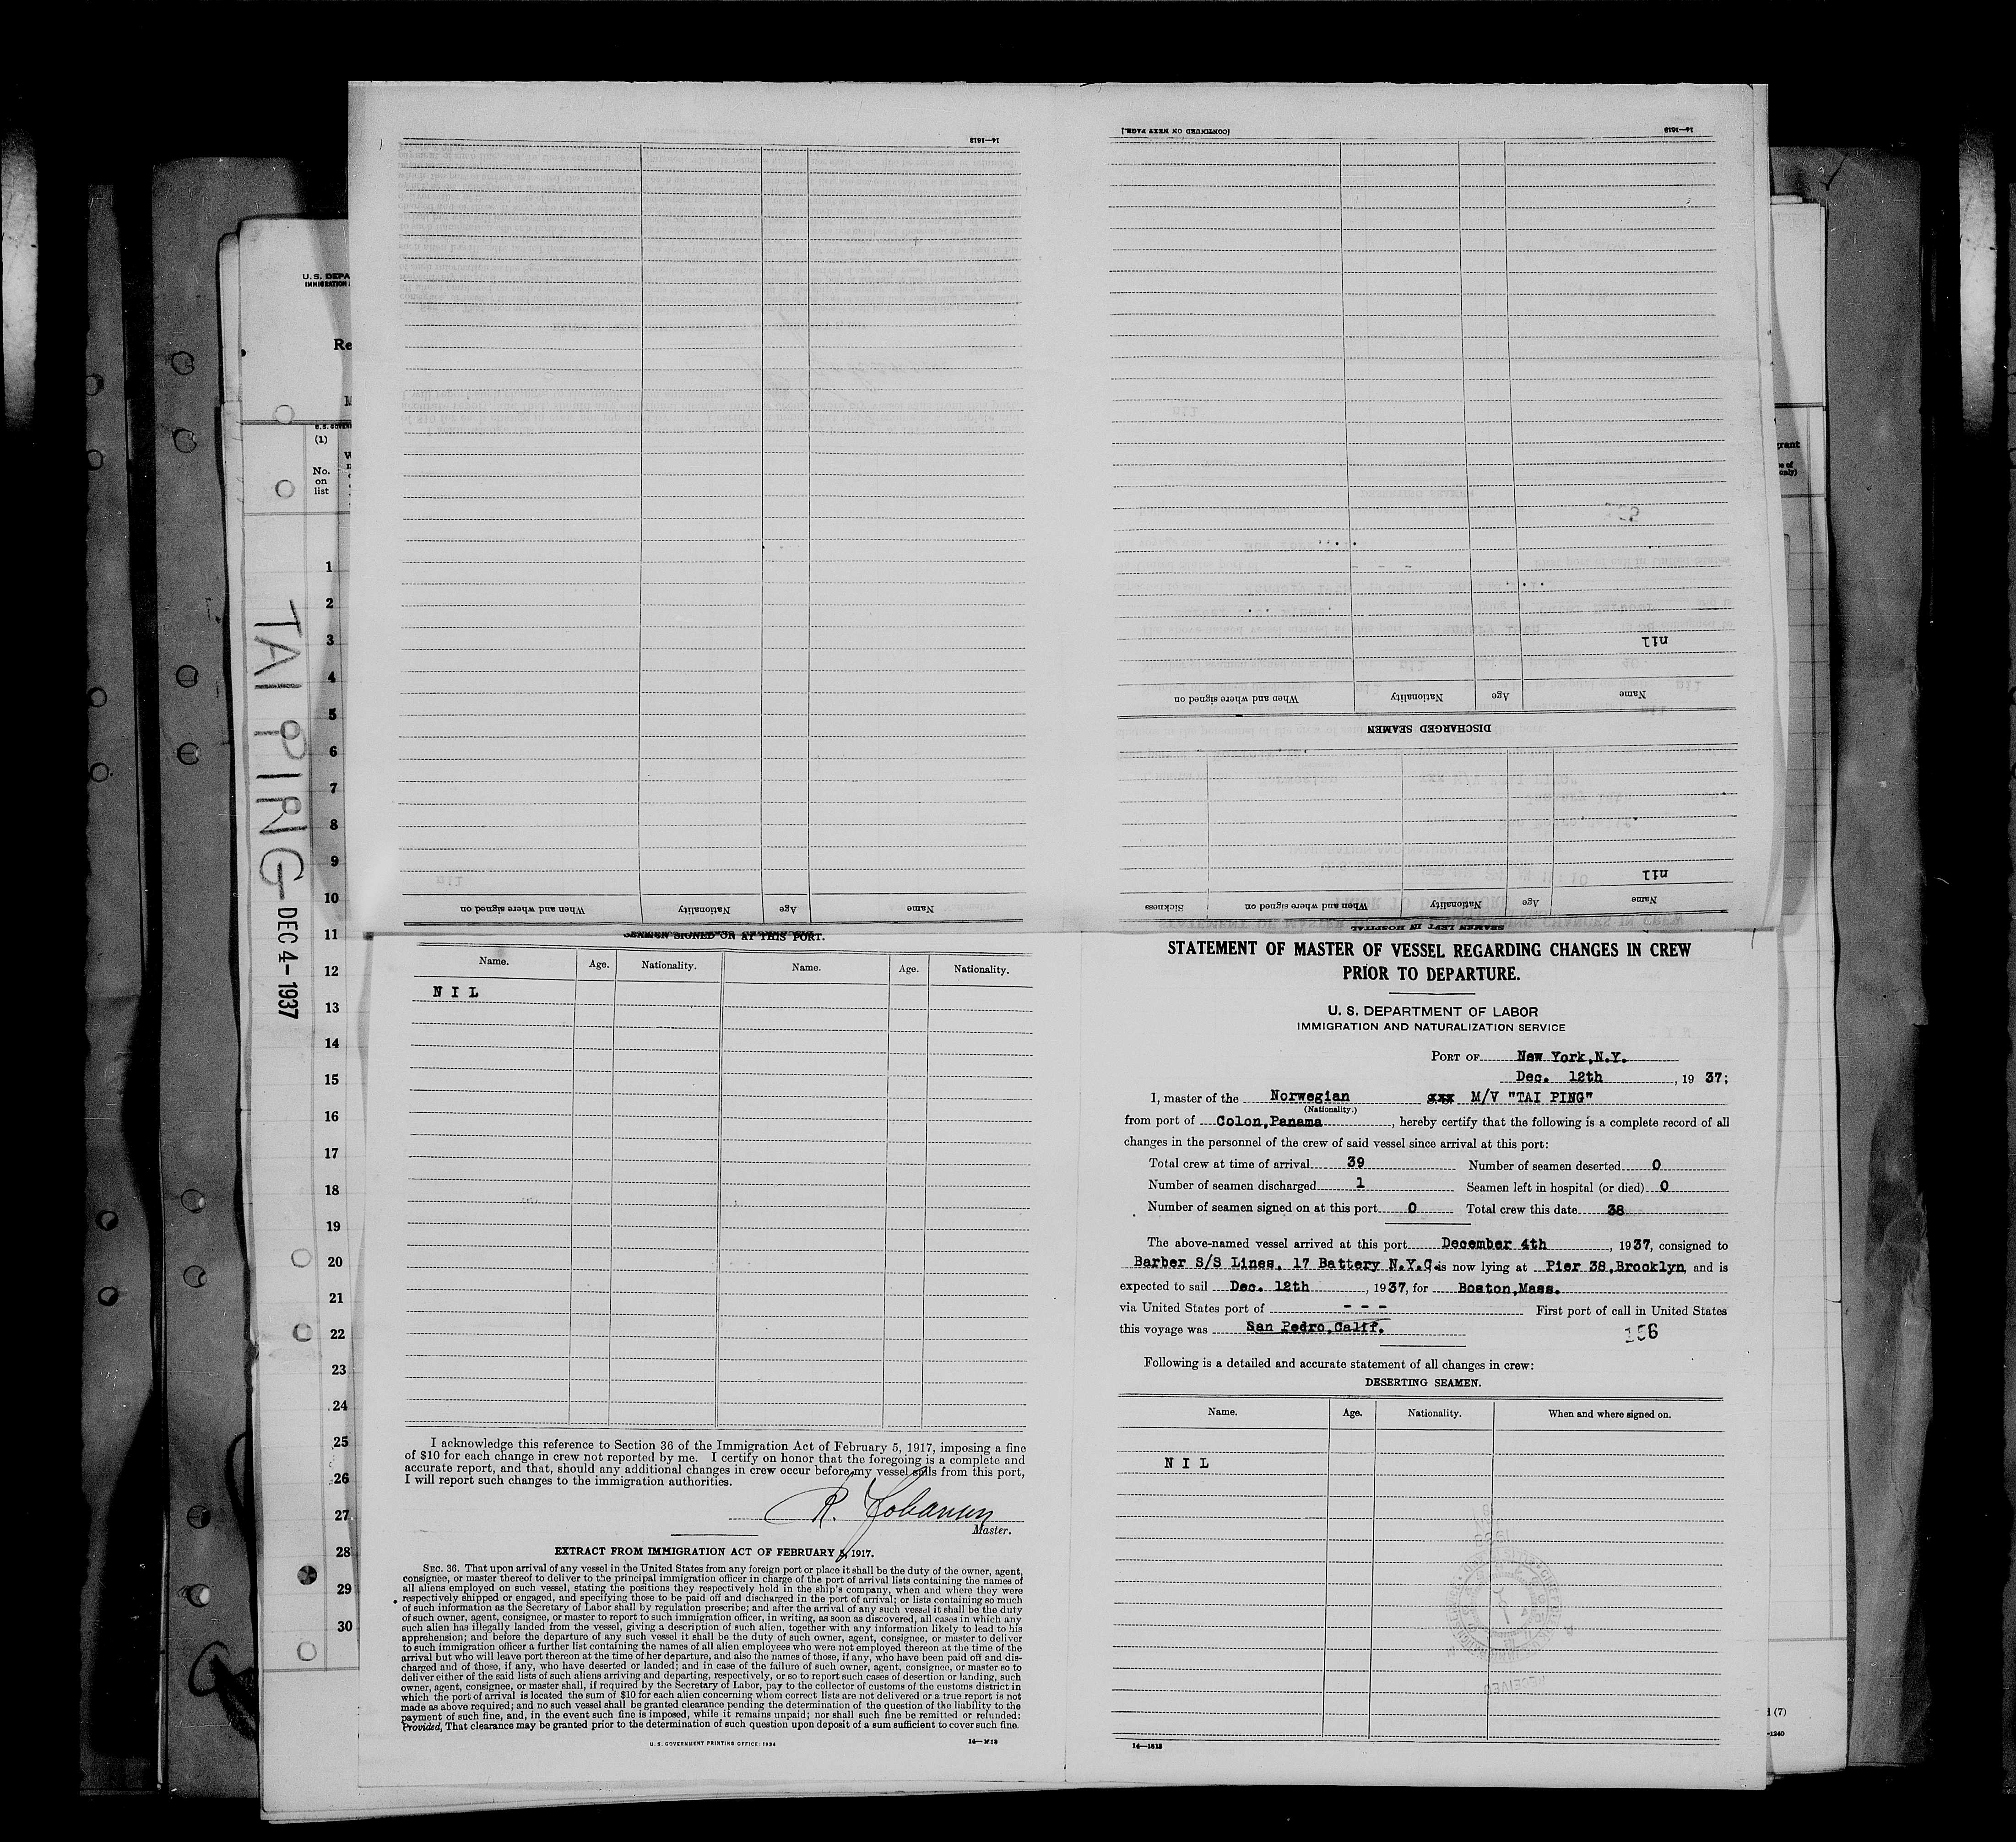 U. S. DEPA
IMMIGRATION
Re
M
U.S. GOVER
(1)
No.
on
list
1
2
3
4
5
6
7
8
9
10
11
12
13
14
15
16
17
18
19
20
21
22
23
24
25
26
27
28
29
30
TAI PING
DEC 4-1937
14—1613
Name
Age
Nationality
When and where signed on
[CONTINUED ON NEXT PAGE.]
14—1613
SEAMEN LEFT IN HOSPITAL
Name
Age
Nationality
When and where signed on
Sickness
nil
DISCHARGED SEAMEN
Name
Age
Nationality
When and where signed on
nil
SEAMEN SIGNED ON AT THIS PORT.
Name. Age. Nationality. Name. Age. Nationality.
N I L
I acknowledge this reference to Section 36 of the Immigration Act of February 5, 1917, imposing a fine
of $10 for each change in crew not reported by me. I certify on honor that the foregoing is a complete and
accurate report, and that, should any additional changes in crew occur before my vessel sails from this port,
I will report such changes to the immigration authorities.
R. Johansen
Master.
EXTRACT FROM IMMIGRATION ACT OF FEBRUARY 5, 1917.
SEC. 36. That upon arrival of any vessel in the United States from any foreign port or place it shall be the duty of the owner, agent,
consignee, or master thereof to deliver to the principal immigration officer in charge of the port of arrival lists containing the names of
all aliens employed on such vessel, stating the positions they respectively hold in the ship's company, when and where they were
respectively shipped or engaged, and specifying those to be paid off and discharged in the port of arrival; or lists containing so much
of such information as the Secretary of Labor shall by regulation prescribe; and after the arrival of any such vessel it shall be the duty
of such owner, agent, consignee, or master to report to such immigration officer, in writing, as soon as discovered, all cases in which any
such alien has illegally landed from the vessel, giving a description of such alien, together with any information likely to lead to his
apprehension; and before the departure of any such vessel it shall be the duty of such owner, agent, consignee, or master to deliver
to such immigration officer a further list containing the names of all alien employees who were not employed thereon at the time of the
arrival but who will leave port thereon at the time of her departure, and also the names of those, if any, who have been paid off and dis-
charged and of those, if any, who have deserted or landed; and in case of the failure of such owner, agent, consignee, or master so to
deliver either of the said lists of such aliens arriving and departing, respectively, or so to report such cases of desertion or landing, such
owner, agent, consignee, or master shall, if required by the Secretary of Labor, pay to the collector of customs of the customs district in
which the port of arrival is located the sum of $10 for each alien concerning whom correct lists are not delivered or a true report is not
made as above required; and no such vessel shall be granted clearance pending the determination of the question of the liability to the
payment of such fine, and, in the event such fine is imposed, while it remains unpaid; nor shall such fine be remitted or refunded:
Provided, That clearance may be granted prior to the determination of such question upon deposit of a sum sufficient to cover such fine.
U. S. GOVERNMENT PRINTING OFFICE: 1934
14—1613
STATEMENT OF MASTER OF VESSEL REGARDING CHANGES IN CREW
PRIOR TO DEPARTURE.
U. S. DEPARTMENT OF LABOR
IMMIGRATION AND NATURALIZATION SERVICE
PORT OF New York,N.Y.
Dec. 12th, 1937;
I, master of the Norwegian xxx M/V "TAI PING"
(Nationality.)
from port of Colon,Panama, hereby certify that the following is a complete record of all
changes in the personnel of the crew of said vessel since arrival at this port:
Total crew at time of arrival 39 Number of seamen deserted 0
Number of seamen discharged 1 Seamen left in hospital (or died) 0
Number of seamen signed on at this port 0 Total crew this date 38
The above-named vessel arrived at this port December 4th, 1937, consigned to
Barber S/S Lines. 17 Battery N.Y.C. is now lying at Pier 38,Brooklyn, and is
expected to sail Dec. 12th, 1937, for Boston,Mass.
via United States port of - - - First port of call in United States
this voyage was San Pedro,Calif.
156
Following is a detailed and accurate statement of all changes in crew:
DESERTING SEAMEN.
Name. Age. Nationality. When and where signed on.
N I L
RECEIVED
14—1613
grant
only)
(7)
-1240